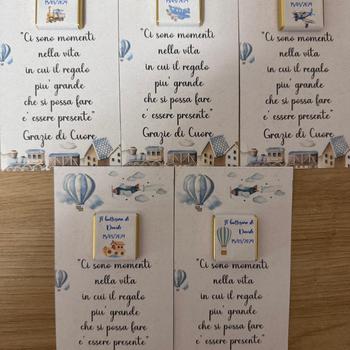 19/05/2024
"Ci sono momenti
nella vita
in cui il regalo
piu' grande
che si possa fare
e' essere presente"
Grazie di Cuore
19/05/2024
"Ci sono momenti
nella vita
in cui il regalo
piu' grande
che si possa fare
e' essere presente"
Grazie di Cuore
19/05/2024
"Ci sono momenti
nella vita
in cui il regalo
piu' grande
che si possa fare
e' essere presente"
Grazie di Cuore
Il battesimo di
Davide
19/05/2024
"Ci sono momenti
nella vita
in cui il regalo
piu' grande
che si possa fare
e' essere presente"
Il battesimo di
Davide
19/05/2024
"Ci sono momenti
nella vita
in cui il regalo
piu' grande
che si possa fare
e' essere presente"